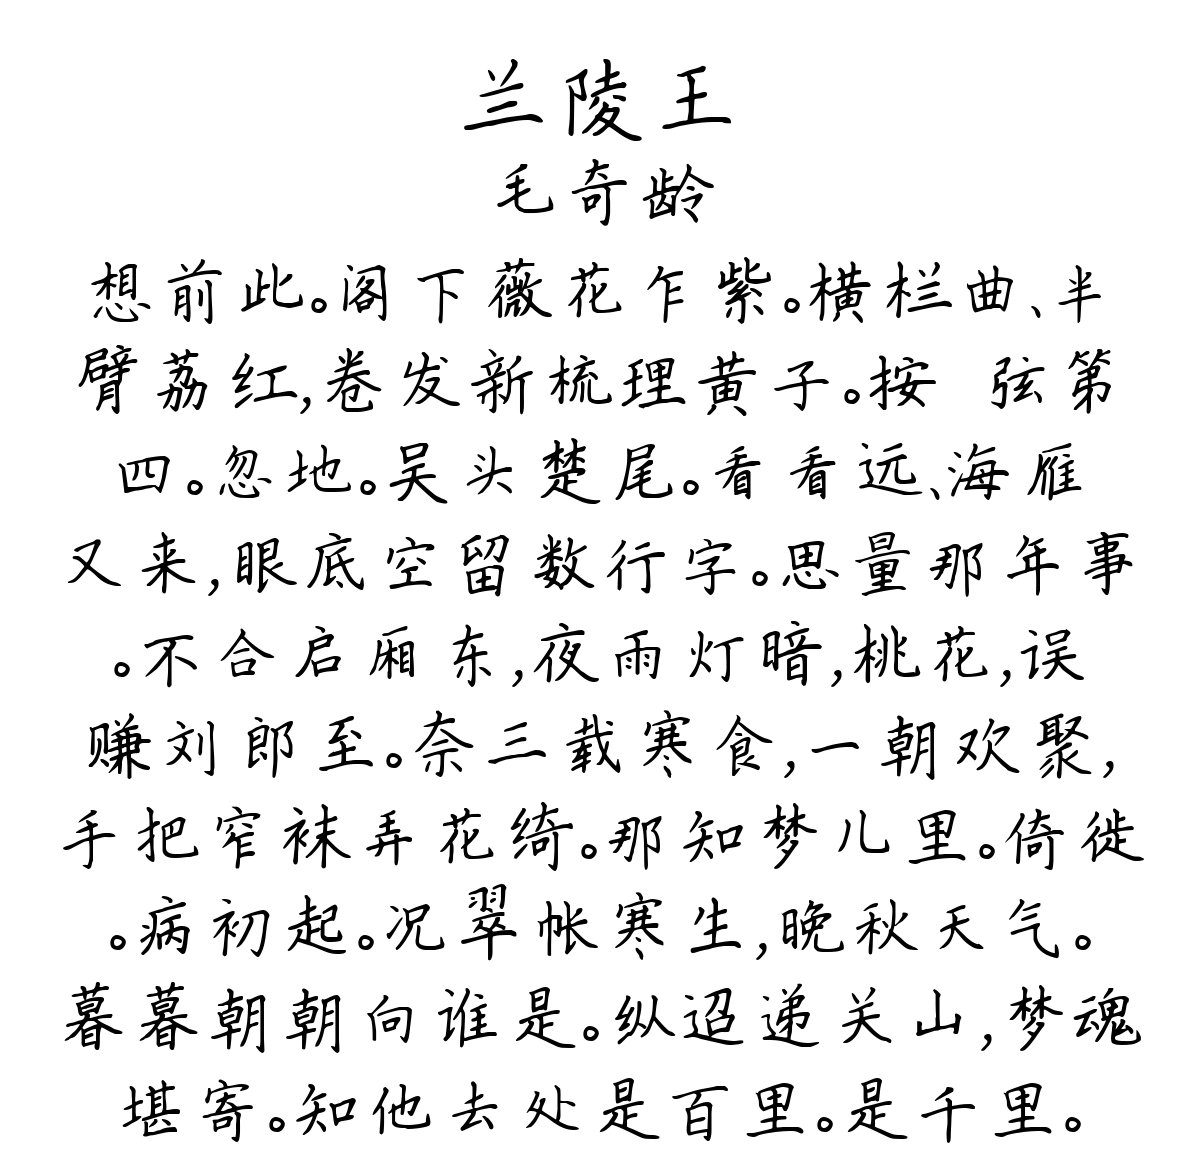 兰陵王
毛奇龄
想前此。阁下薇花乍紫。横栏曲、半
臂荔红,卷发新梳理黄子。按 弦第
四。忽地。吴头楚尾。看看远、海雁
又来,眼底空留数行字。思量那年事
。不合启厢东,夜雨灯暗,桃花,误
赚刘郎至。奈三载寒食,一朝欢聚,
手把窄袜弄花绮。那知梦儿里。倚徙
。病初起。况翠帐寒生,晚秋天气。
暮暮朝朝向谁是。纵迢递关山,梦魂
堪寄。知他去处是百里。是千里。